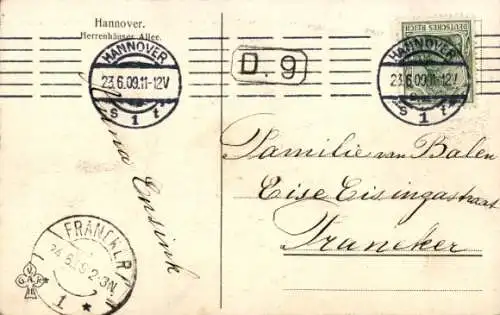 Hannover.
Herrenhäuser Allee.
HANNOVER
23.6.09.11-12V
*s 1 t*
D. 9
DEUTSCHES REICH
HANNOVER
23.6.09.11-12V
*s 1 t*
Anna Ensink
Familie van Balen
Eise Eisingastraat
Franeker
FRANEKER
24.6.09 2-3N
1 *